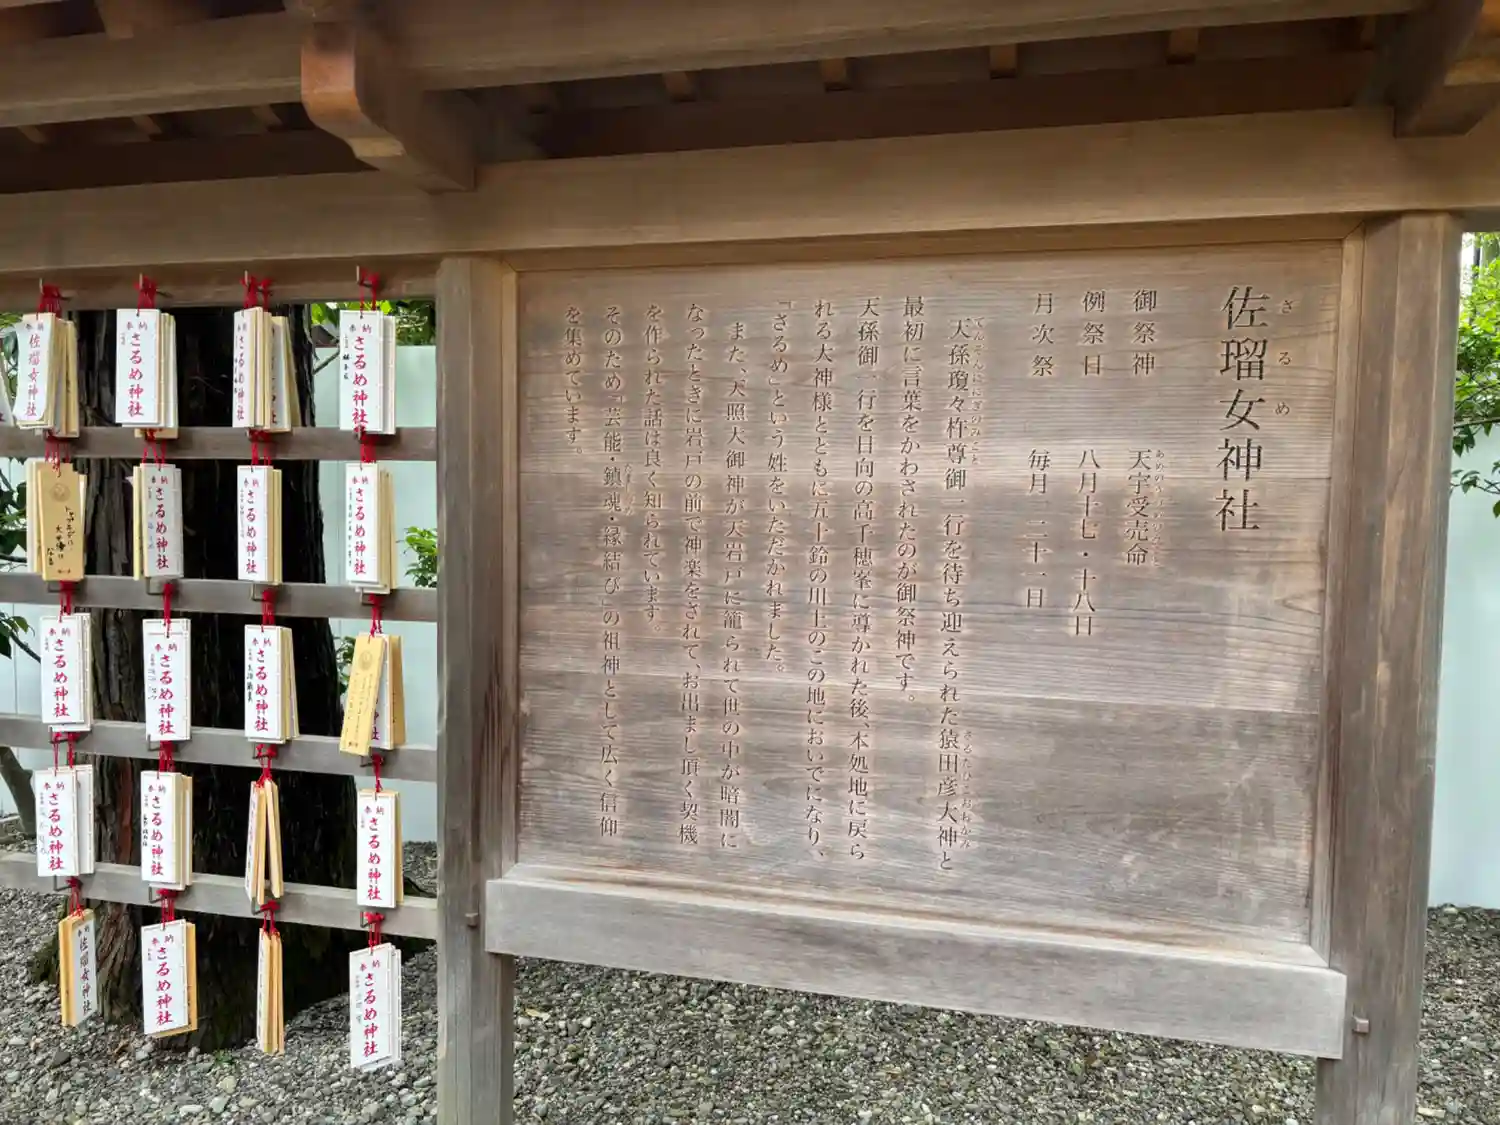 佐瑠女神社
さるめ
御祭神 天宇受売命
あめのうずめのみこと
例祭日 八月十七・十八日
月次祭 毎月 二十一日
天孫瓊々杵尊御一行を待ち迎えられた猿田彦大神と
てんそんににぎのみこと
さるたひこおおかみ
最初に言葉をかわされたのが御祭神です。
天孫御一行を日向の高千穂峯に導かれた後、本処地に戻ら
れる大神様とともに五十鈴の川上のこの地においでになり、
「さるめ」という姓をいただかれました。
また、天照大御神が天岩戸に籠られて世の中が暗闇に
なったときに岩戸の前で神楽をされて、お出まし頂く契機
を作られた話は良く知られています。
そのため「芸能・鎮魂・縁結び」の祖神として広く信仰
たましずめ
を集めています。
奉納
佐瑠女神社
奉納
さるめ神社
奉納
さるめ神社
奉納
さるめ神社
奉納
さるめ神社
奉納
さるめ神社
奉納
さるめ神社
奉納
さるめ神社
奉納
さるめ神社
奉納
さるめ神社
奉納
さるめ神社
奉納
さるめ神社
奉納
さるめ神社
奉納
佐瑠女神社
奉納
さるめ神社
奉納
さるめ神社